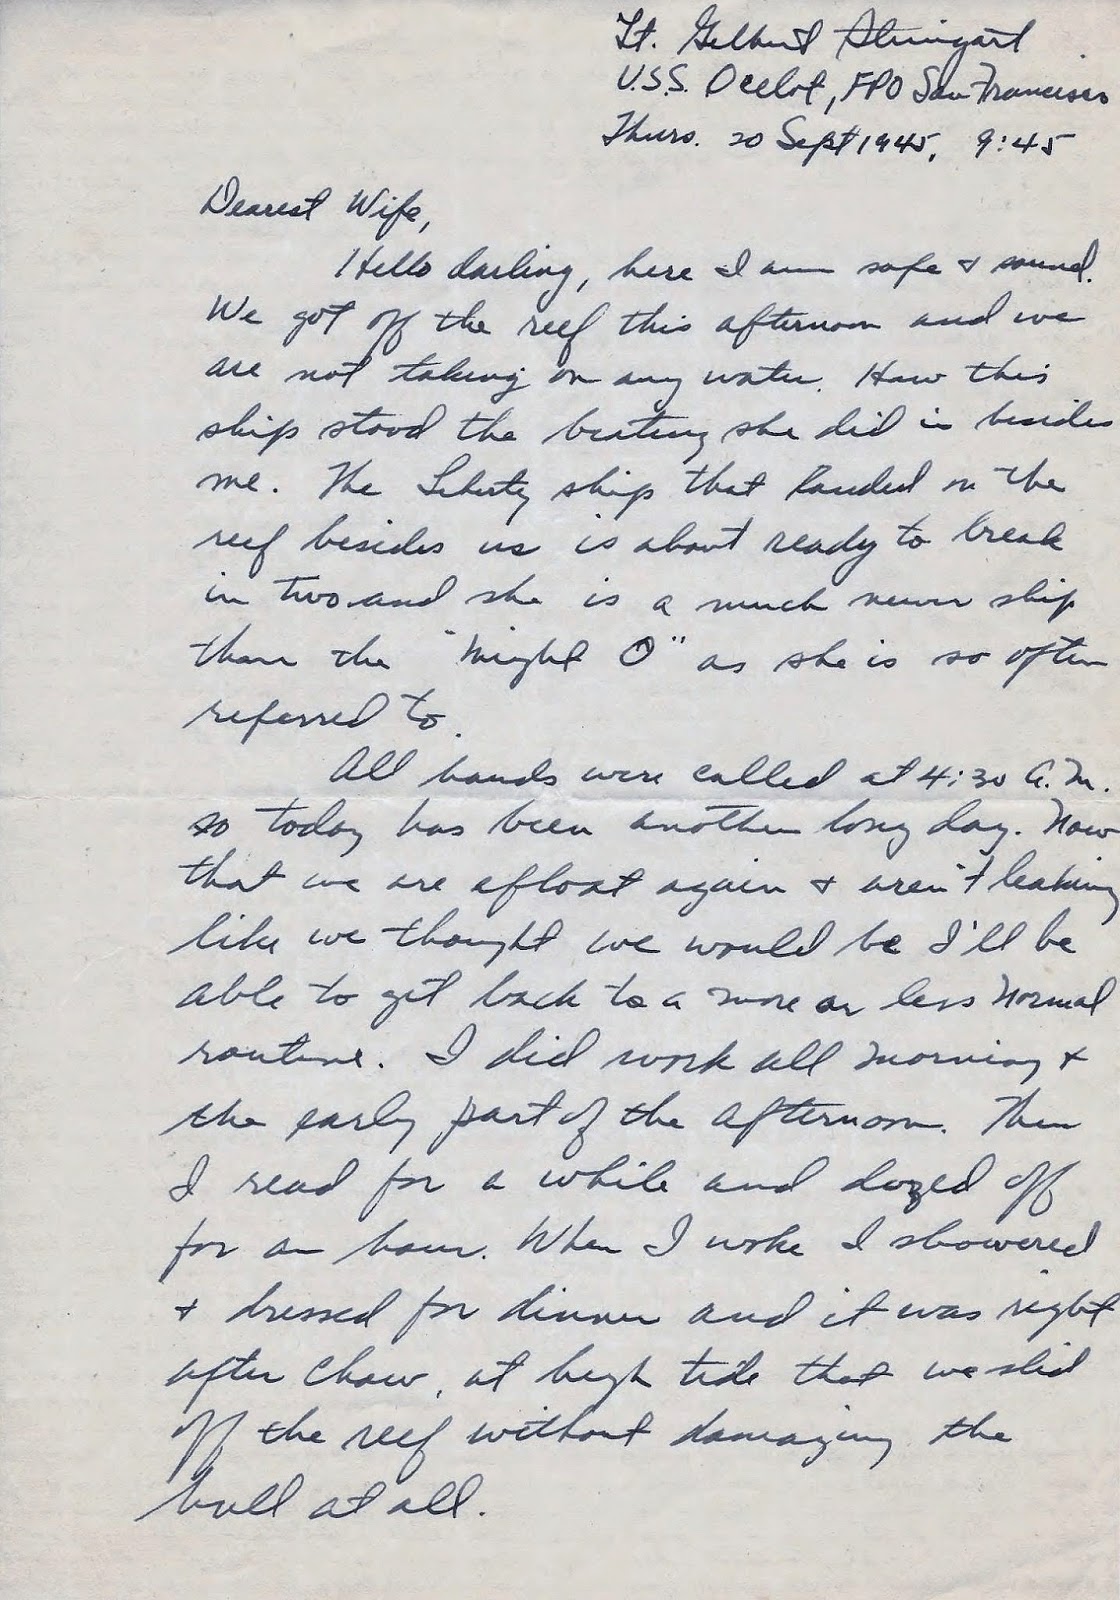 Lt. Gilbert Steingart
U.S.S. Ocelot, FPO San Francisco
Thurs. 20 Sept 1945, 9:45
Dearest Wife,
Hello darling, here I am safe & sound.
We got off the reef this afternoon and we
are not taking on any water. How this
ship stood the beating she did is besides
me. The Liberty ship that landed on the
reef besides us is about ready to break
in two and she is a much newer ship
than the "Might O" as she is so often
referred to.
All hands were called at 4:30 A.M.
so today has been another long day. Now
that we are afloat again & aren't leaking
like we thought we would be I'll be
able to get back to a more or less normal
routine. I did work all morning &
the early part of the afternoon. Then
I read for a while and dozed off
for an hour. When I woke I showered
& dressed for dinner and it was right
after chow, at high tide that we slid
off the reef without damaging the
hull at all.